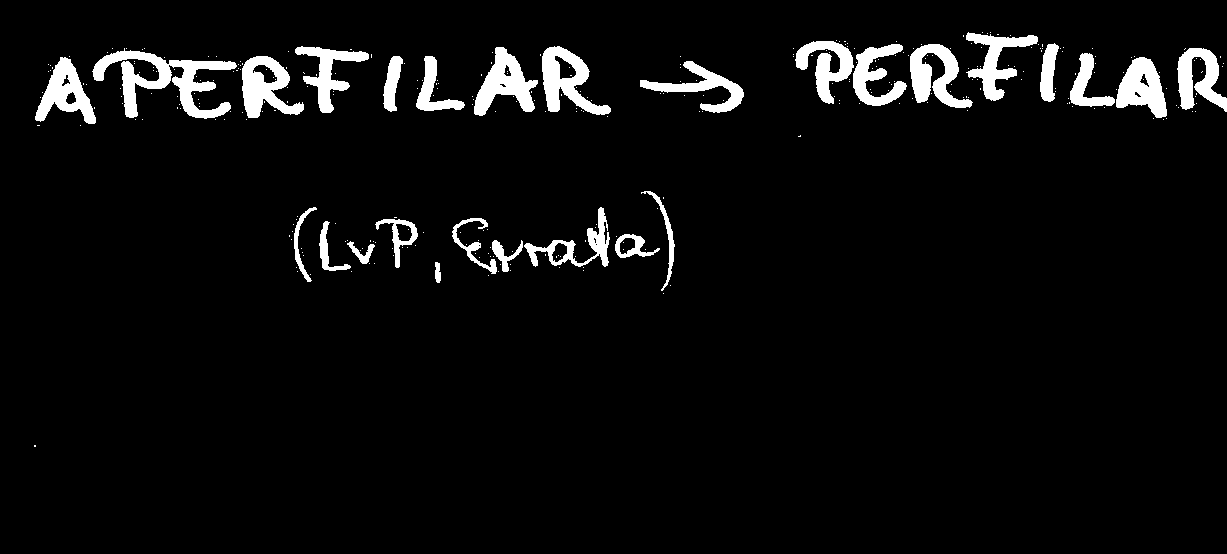 APERFILAR → PERFILAR
(LvP, Errata)